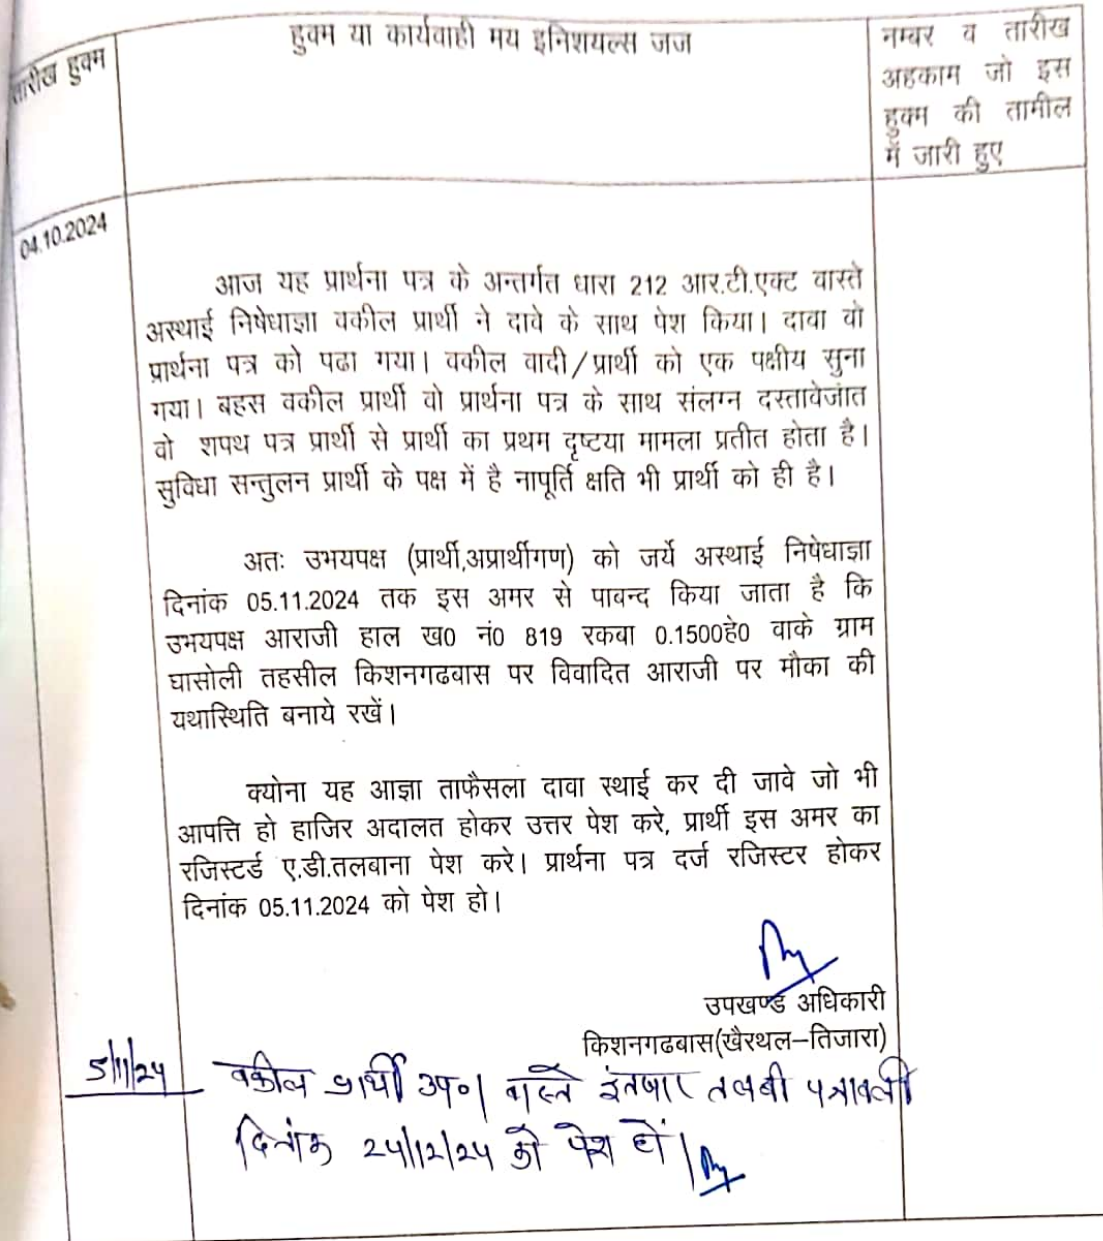 तारीख हुक्म
हुक्म या कार्यवाही मय इनिशयल्स जज
नम्बर व तारीख
अहकाम जो इस
हुक्म की तामील
में जारी हुए
04.10.2024
आज यह प्रार्थना पत्र के अन्तर्गत धारा 212 आर.टी.एक्ट वास्ते
अस्थाई निषेधाज्ञा वकील प्रार्थी ने दावे के साथ पेश किया। दावा वो
प्रार्थना पत्र को पढा गया। वकील वादी/प्रार्थी को एक पक्षीय सुना
गया। बहस वकील प्रार्थी वो प्रार्थना पत्र के साथ संलग्न दस्तावेजात
वो शपथ पत्र प्रार्थी से प्रार्थी का प्रथम दृष्टया मामला प्रतीत होता है।
सुविधा सन्तुलन प्रार्थी के पक्ष में है नापूर्ति क्षति भी प्रार्थी को ही है।
अतः उभयपक्ष (प्रार्थी,अप्रार्थीगण) को जर्ये अस्थाई निषेधाज्ञा
दिनांक 05.11.2024 तक इस अमर से पाबन्द किया जाता है कि
उभयपक्ष आराजी हाल ख0 नं0 819 रकबा 0.1500हे0 वाके ग्राम
घासोली तहसील किशनगढबास पर विवादित आराजी पर मौका की
यथास्थिति बनाये रखें।
क्योना यह आज्ञा ताफैसला दावा स्थाई कर दी जावे जो भी
आपत्ति हो हाजिर अदालत होकर उत्तर पेश करे, प्रार्थी इस अमर का
रजिस्टर्ड ए.डी.तलबाना पेश करे। प्रार्थना पत्र दर्ज रजिस्टर होकर
दिनांक 05.11.2024 को पेश हो।
उपखण्ड अधिकारी
किशनगढबास(खैरथल-तिजारा)
5/11/24 वकील प्रार्थी उप०। वास्ते इंतजार तलबी पत्रावली
दिनांक 24/12/24 को पेश हो।